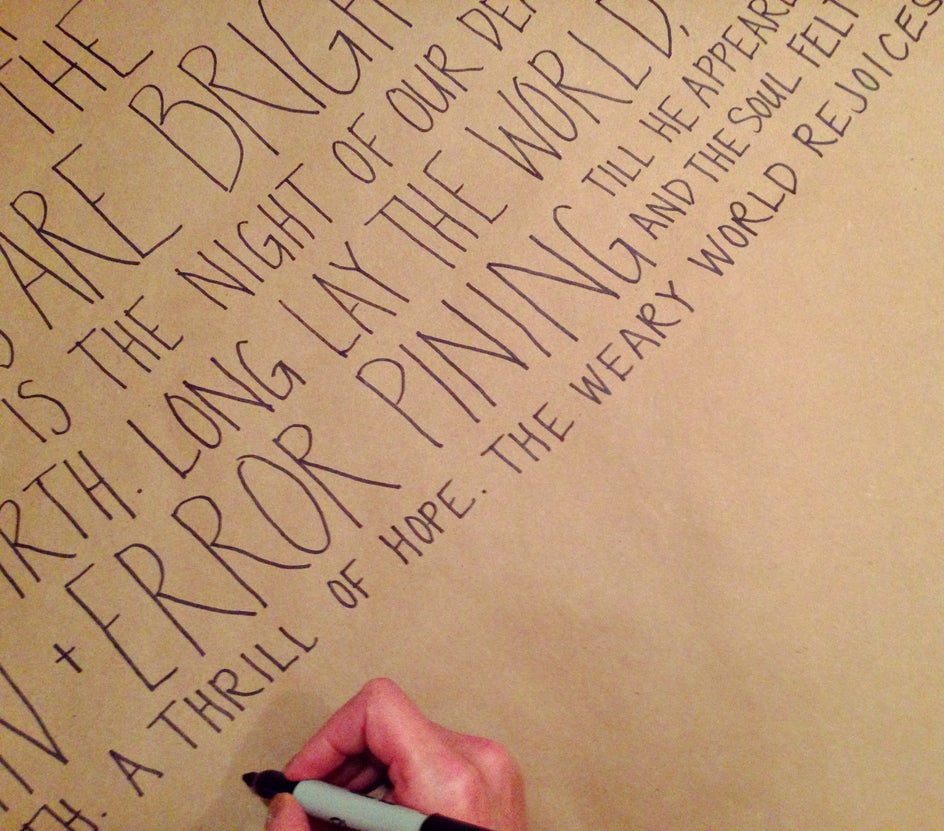 THE
ARE BRIGH
IS THE NIGHT OF OUR DEA
RTH. LONG LAY THE WORLD,
N + ERROR PINING TILL HE APPEARE
TH. A THRILL OF HOPE. THE WEARY WORLD REJOICES
AND THE SOUL FELT